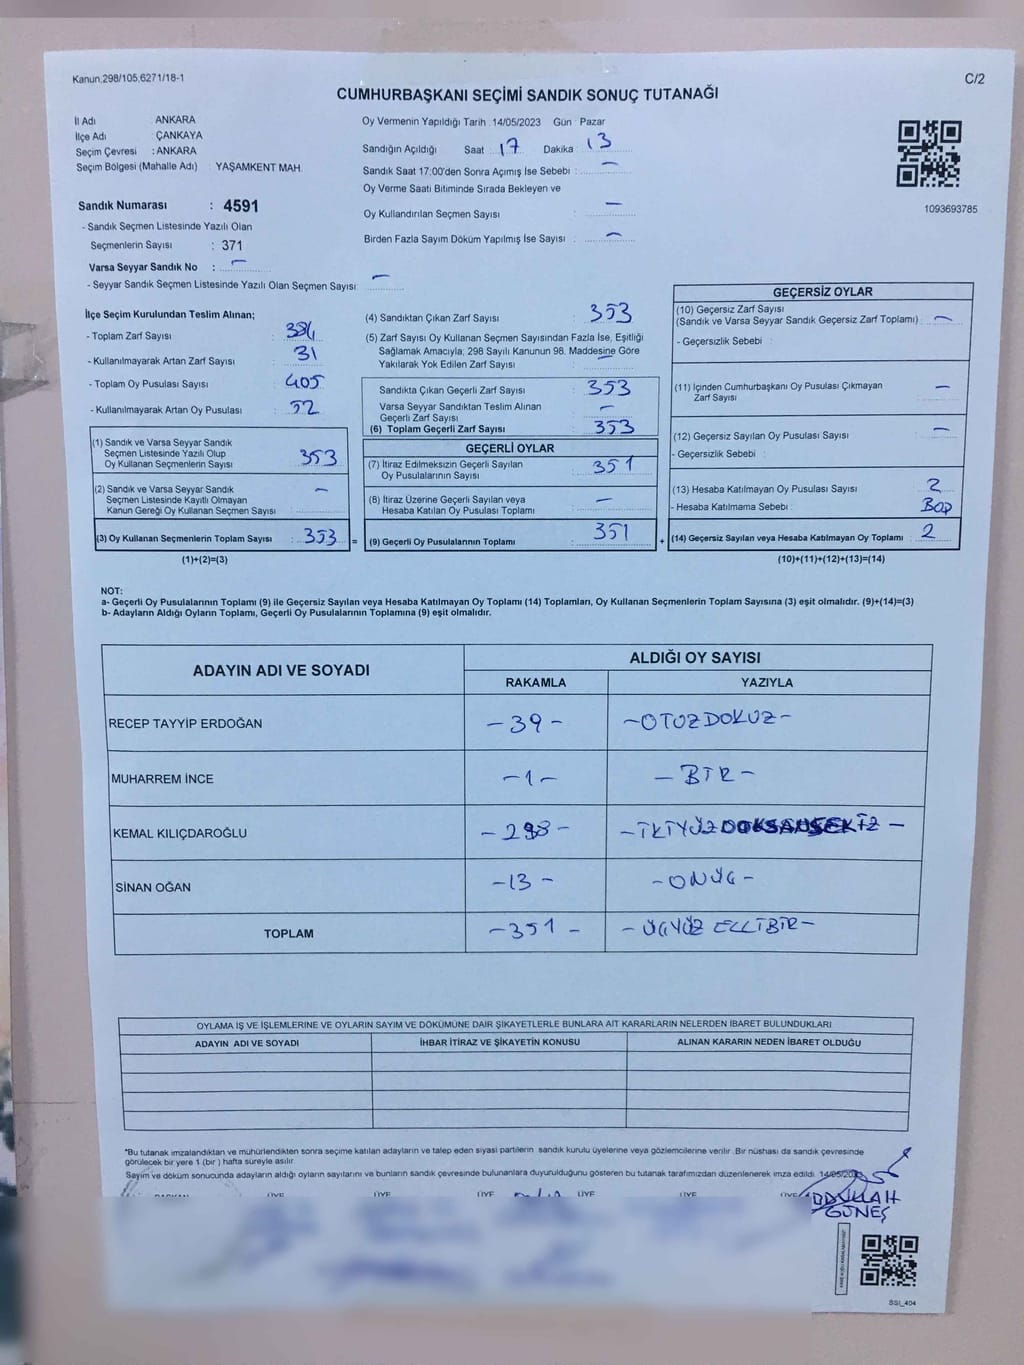 Kanun.298/105.6271/18-1
C/2
CUMHURBAŞKANI SEÇİMİ SANDIK SONUÇ TUTANAĞI
İl Adı : ANKARA
İlçe Adı : ÇANKAYA
Seçim Çevresi : ANKARA
Seçim Bölgesi (Mahalle Adı) : YAŞAMKENT MAH.
Sandık Numarası : 4591
- Sandık Seçmen Listesinde Yazılı Olan
Seçmenlerin Sayısı : 371
Varsa Seyyar Sandık No : –
- Seyyar Sandık Seçmen Listesinde Yazılı Olan Seçmen Sayısı: –
Oy Vermenin Yapıldığı Tarih :14/05/2023 Gün : Pazar
Sandığın Açıldığı Saat : 17 Dakika : 13
Sandık Saat 17:00'den Sonra Açımış İse Sebebi : –
Oy Verme Saati Bitiminde Sırada Bekleyen ve
Oy Kullandırılan Seçmen Sayısı : –
Birden Fazla Sayım Döküm Yapılmış İse Sayısı : –
1093693785
İlçe Seçim Kurulundan Teslim Alınan;
- Toplam Zarf Sayısı :
- Kullanılmayarak Artan Zarf Sayısı : 31
- Toplam Oy Pusulası Sayısı : 405
- Kullanılmayarak Artan Oy Pusulası : 52
(1) Sandık ve Varsa Seyyar Sandık
Seçmen Listesinde Yazılı Olup
Oy Kullanan Seçmenlerin Sayısı : 353
(2) Sandık ve Varsa Seyyar Sandık
Seçmen Listesinde Kayıtlı Olmayan
Kanun Gereği Oy Kullanan Seçmen Sayısı : –
(3) Oy Kullanan Seçmenlerin Toplam Sayısı : 353 =
(1)+(2)=(3)
(4) Sandıktan Çıkan Zarf Sayısı : 353
(5) Zarf Sayısı Oy Kullanan Seçmen Sayısından Fazla İse, Eşitliği
Sağlamak Amacıyla; 298 Sayılı Kanunun 98. Maddesine Göre
Yakılarak Yok Edilen Zarf Sayısı : –
Sandıkta Çıkan Geçerli Zarf Sayısı : 353
Varsa Seyyar Sandıktan Teslim Alınan
Geçerli Zarf Sayısı : –
(6) Toplam Geçerli Zarf Sayısı : 353
GEÇERLİ OYLAR
(7) İtiraz Edilmeksizin Geçerli Sayılan
Oy Pusulalarının Sayısı : 351
(8) İtiraz Üzerine Geçerli Sayılan veya
Hesaba Katılan Oy Pusulası Toplamı : –
(9) Geçerli Oy Pusulalarının Toplamı : 351 +
GEÇERSİZ OYLAR
(10) Geçersiz Zarf Sayısı
(Sandık ve Varsa Seyyar Sandık Geçersiz Zarf Toplamı) : –
- Geçersizlik Sebebi :
(11) İçinden Cumhurbaşkanı Oy Pusulası Çıkmayan
Zarf Sayısı : –
(12) Geçersiz Sayılan Oy Pusulası Sayısı : –
- Geçersizlik Sebebi :
(13) Hesaba Katılmayan Oy Pusulası Sayısı : 2
- Hesaba Katılmama Sebebi :
(14) Geçersiz Sayılan veya Hesaba Katılmayan Oy Toplamı : 2
(10)+(11)+(12)+(13)=(14)
NOT:
a- Geçerli Oy Pusulalarının Toplamı (9) ile Geçersiz Sayılan veya Hesaba Katılmayan Oy Toplamı (14) Toplamları, Oy Kullanan Seçmenlerin Toplam Sayısına (3) eşit olmalıdır. (9)+(14)=(3)
b- Adayların Aldığı Oyların Toplamı, Geçerli Oy Pusulalarının Toplamına (9) eşit olmalıdır.
ADAYIN ADI VE SOYADI
ALDIĞI OY SAYISI
RAKAMLA YAZIYLA
RECEP TAYYİP ERDOĞAN -39- -OTUZDOKUZ-
MUHARREM İNCE -1- -BİR-
KEMAL KILIÇDAROĞLU -298- -İKİYÜZDOKSANSEKİZ-
SİNAN OĞAN -13- -ONÜÇ-
TOPLAM -351- -ÜÇYÜZ ELLİBİR-
OYLAMA İŞ VE İŞLEMLERİNE VE OYLARIN SAYIM VE DÖKÜMÜNE DAİR ŞİKAYETLERLE BUNLARA AİT KARARLARIN NELERDEN İBARET BULUNDUKLARI
ADAYIN ADI VE SOYADI İHBAR İTİRAZ VE ŞİKAYETİN KONUSU ALINAN KARARIN NEDEN İBARET OLDUĞU
*Bu tutanak imzalandıktan ve mühürlendikten sonra seçime katılan adayların ve talep eden siyasi partilerin sandık kurulu üyelerine veya gözlemcilerine verilir .Bir nüshası da sandık çevresinde
görülecek bir yere 1 (bir ) hafta süreyle asılır
Sayım ve döküm sonucunda adayların aldığı oyların sayılarını ve bunların sandık çevresinde bulunanlara duyurulduğunu gösteren bu tutanak tarafımızdan düzenlenerek imza edildi.
BAŞKAN ÜYE ÜYE ÜYE ÜYE ÜYE ÜYE
ABDULLAH
GÜNEŞ
SSI_404